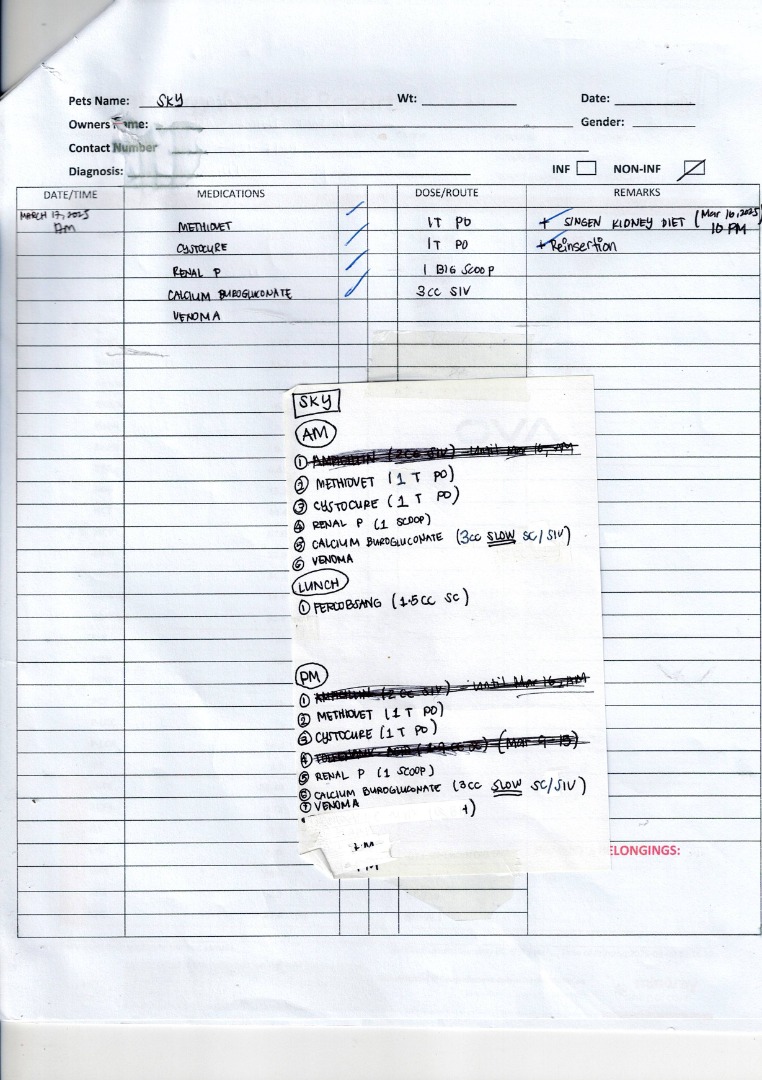 Pets Name: SKY Wt: Date:
Owners Name: Gender:
Contact Number
Diagnosis: INF NON-INF
DATE/TIME MEDICATIONS DOSE/ROUTE REMARKS
MARCH 17, 2025 METHIOVET 1T PO + SINGEN KIDNEY DIET (Mar 16, 2025)
PM CYSTOCURE 1T PO + Reinsertion 10 PM
RENAL P 1 BIG SCOOP
CALCIUM BUROGLUKONATE 3cc SIV
VENOMA
SKY
AM
① (2cc SIV) until Mar 16, AM
② METHIOVET (1 T PO)
③ CYSTOCURE (1 T PO)
④ RENAL P (1 SCOOP)
⑤ CALCIUM BUROGLUCONATE (3cc SLOW SC/SIV)
⑥ VENOMA
LUNCH
① PERCOBSANG (1.5CC SC)
PM
① (2cc SIV) - until Mar 16, AM
② METHIOVET (1 T PO)
③ CYSTOCURE (1 T PO)
④ (Mar 9-13)
⑤ RENAL P (1 SCOOP)
⑥ CALCIUM BUROGLUCONATE (3cc SLOW SC/SIV)
⑦ VENOMA
ELONGINGS: